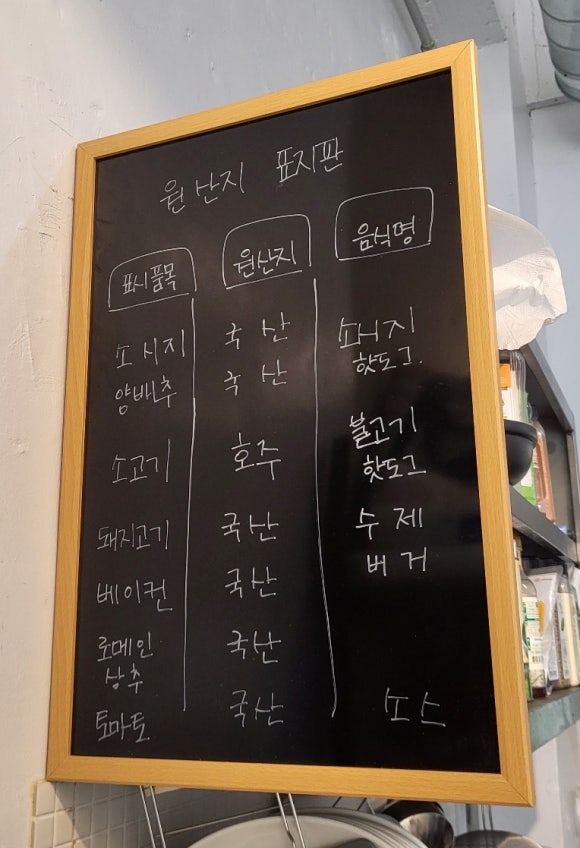 원산지 표지판
표시품목 원산지 음식명
소시지 국산 소시지
양배추 국산 핫도그.
불고기
소고기 호주 핫도그
돼지고기 국산 수제
베이컨 국산 버거
로메인 국산
상추
토마토 국산 소스